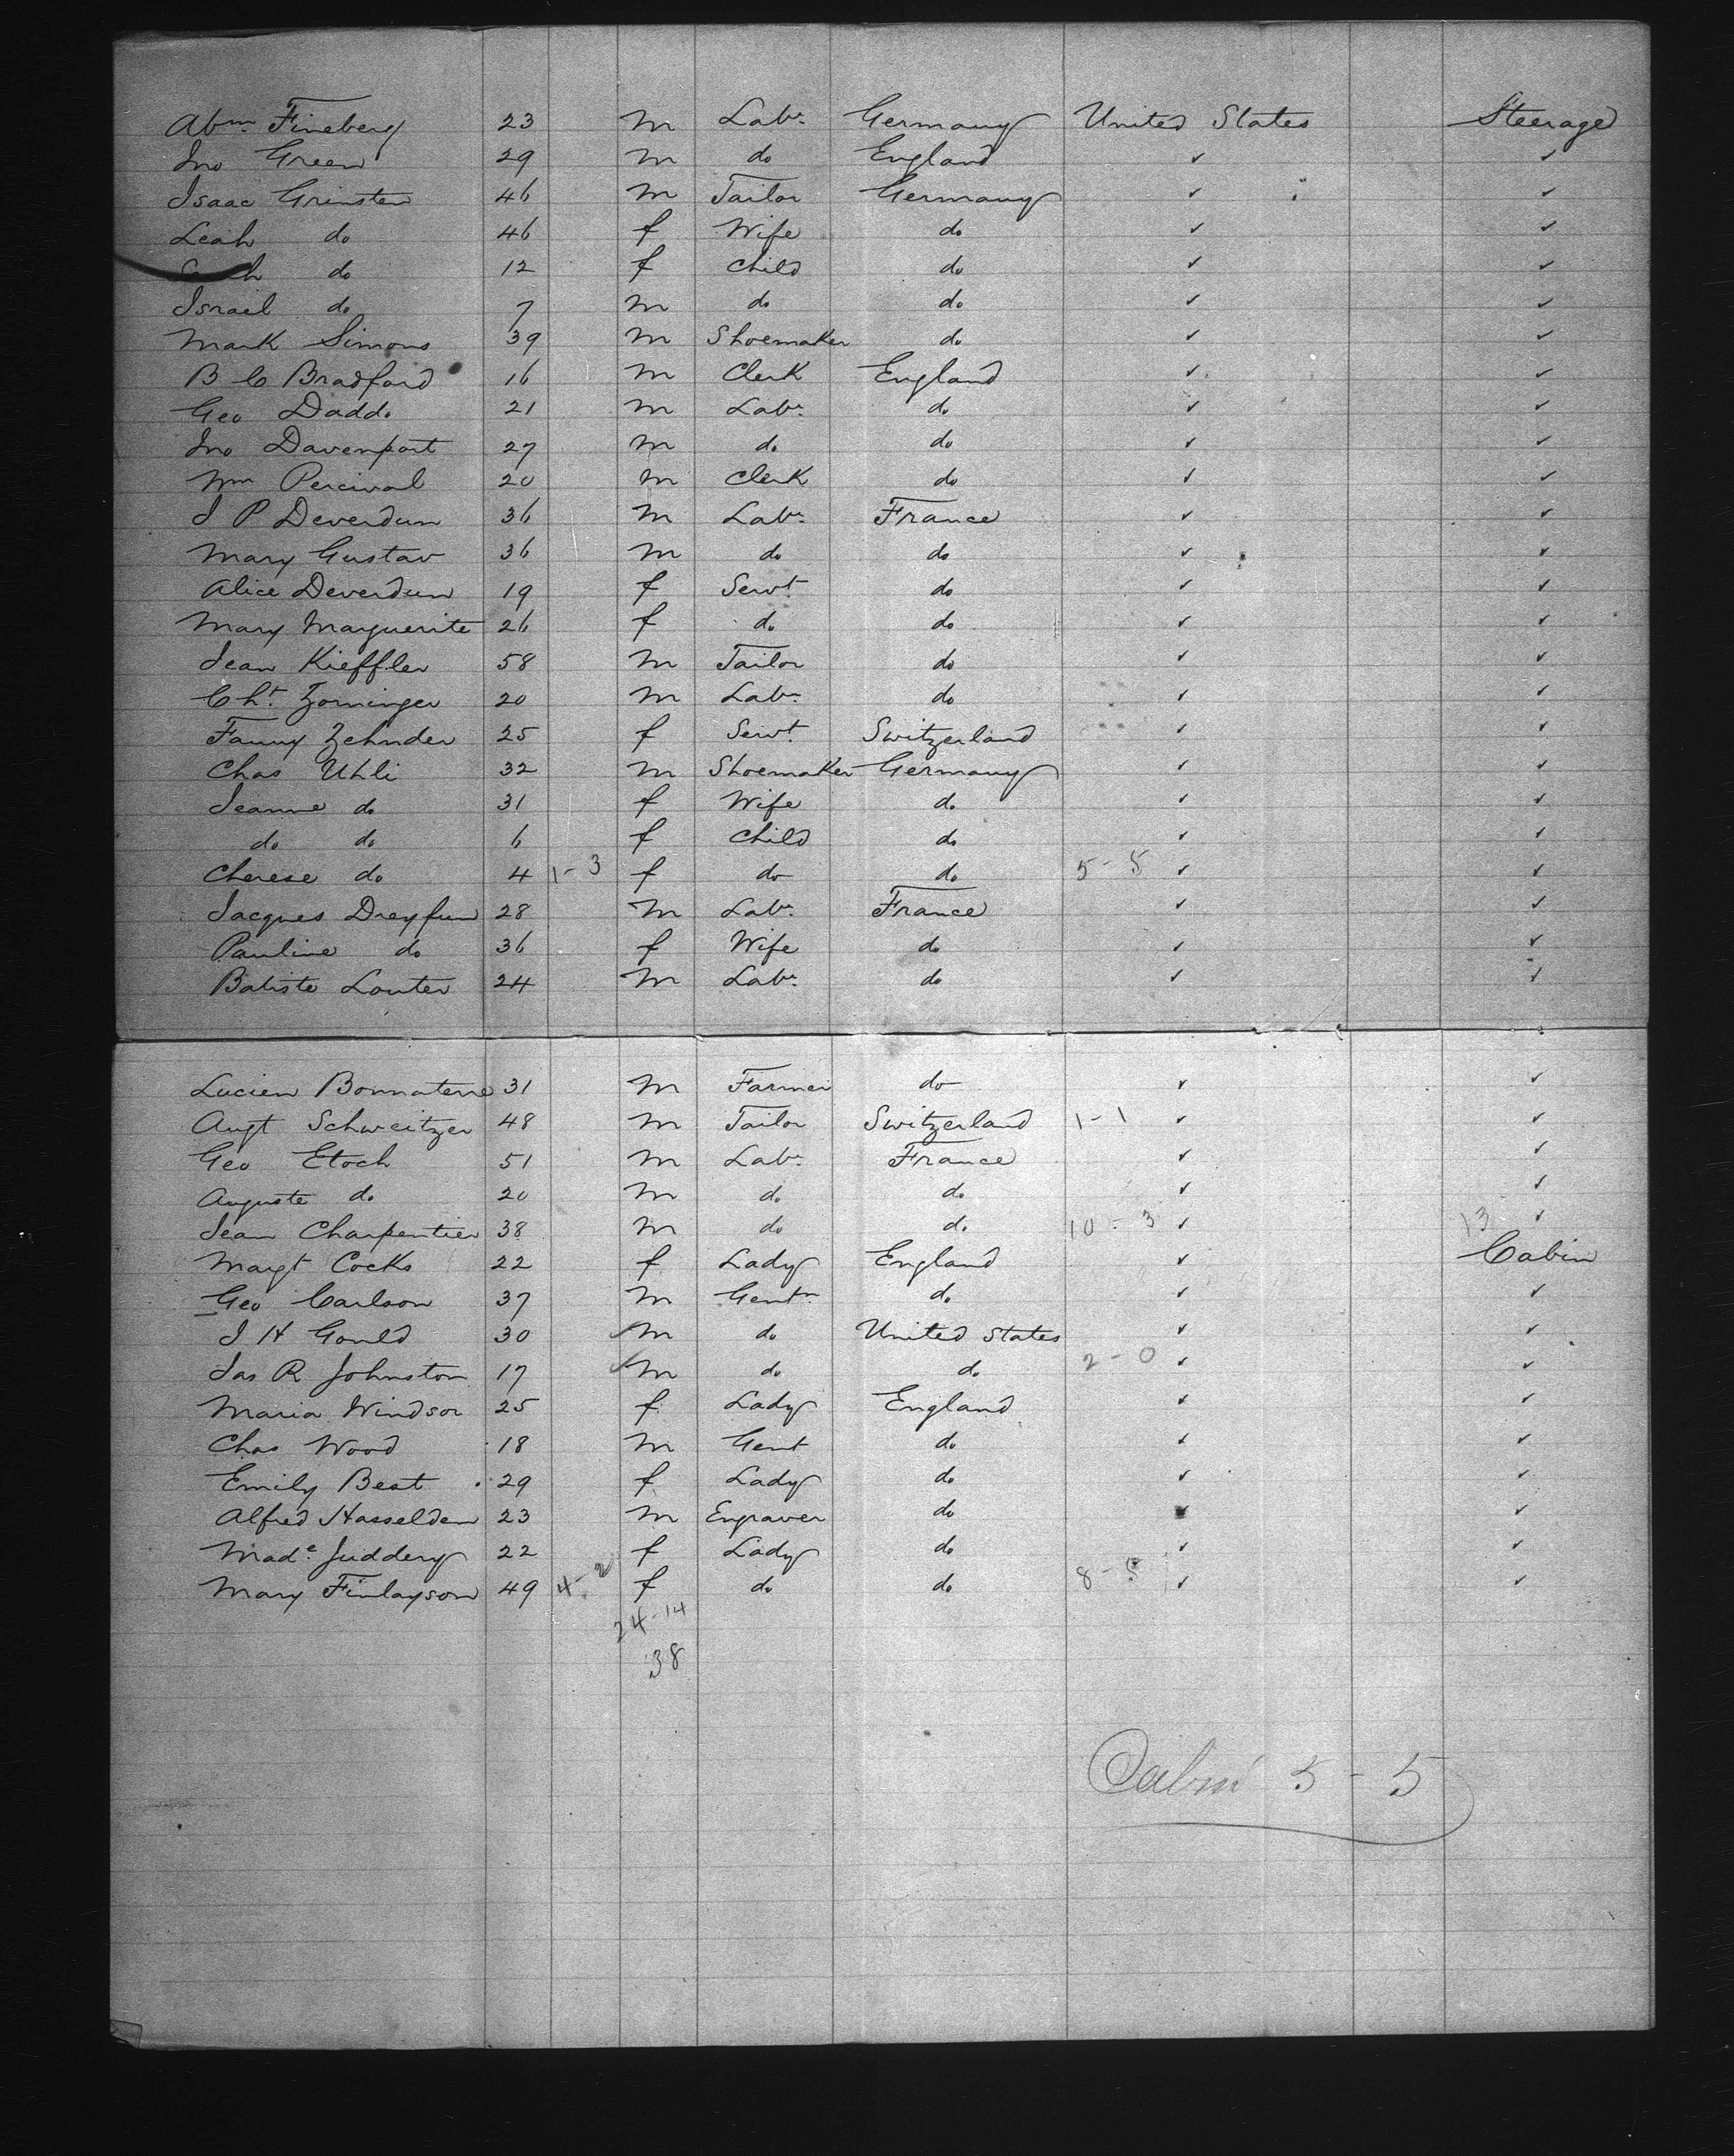 Abm Fineberg 23 m Labr Germany United States Steerage
Jno Green 29 m do England ✓ ✓
Isaac Grinsten 46 m Tailor Germany ✓ ✓
Leah do 46 f Wife do ✓ ✓
do 12 f Child do ✓ ✓
Israel do 7 m do do ✓ ✓
Mark Simons 39 m Shoemaker do ✓ ✓
B C Bradford 16 m Clerk England ✓ ✓
Geo Daddo 21 m Labr do ✓ ✓
Jno Davenport 27 m do do ✓ ✓
Wm Percival 20 m Clerk do ✓ ✓
J P Deverdun 36 m Labr France ✓ ✓
Mary Gustav 36 m do do ✓ ✓
Alice Deverdun 19 f Servt do ✓ ✓
Mary Marguerite 26 f do do ✓ ✓
Jean Kieffler 58 m Tailor do ✓ ✓
Cht Zorninger 20 m Labr do ✓ ✓
Fanny Zehnder 25 f Servt Switzerland ✓ ✓
Chas Uhli 32 m Shoemaker Germany ✓ ✓
Jeanne do 31 f Wife do ✓ ✓
do do 6 f Child do ✓ ✓
Cherese do 4 1-3 f do do 5-5 ✓ ✓
Jacques Dreyfun 28 m Labr France ✓ ✓
Pauline do 36 f Wife do ✓ ✓
Batiste Lauter 24 m Labr do ✓ ✓
Lucien Bonnaterre 31 m Farmer do ✓ ✓
Augt Schweitzer 48 m Tailor Switzerland 1-1 ✓ ✓
Geo Etoch 51 m Labr France ✓ ✓
Auguste do 20 m do do ✓ ✓
Jean Charpentier 38 m do do 10-3 ✓ 13 ✓
Margt Cocks 22 f Lady England ✓ Cabin
Geo Carlson 37 m Gentn do ✓ ✓
J H Gould 30 ✓ m do United States ✓ ✓
Jas R Johnston 17 ✓ m do do 2-0 ✓ ✓
Maria Windsor 25 f Lady England ✓ ✓
Chas Wood 18 m Gent do ✓ ✓
Emily Best 29 f Lady do ✓ ✓
Alfred Hasselden 23 m Engraver do ✓
Made Juddery 22 f Lady do ✓ ✓
Mary Finlayson 49 4-2 f do do 8-5 ✓ ✓
24-14
38
Cabin 5-5